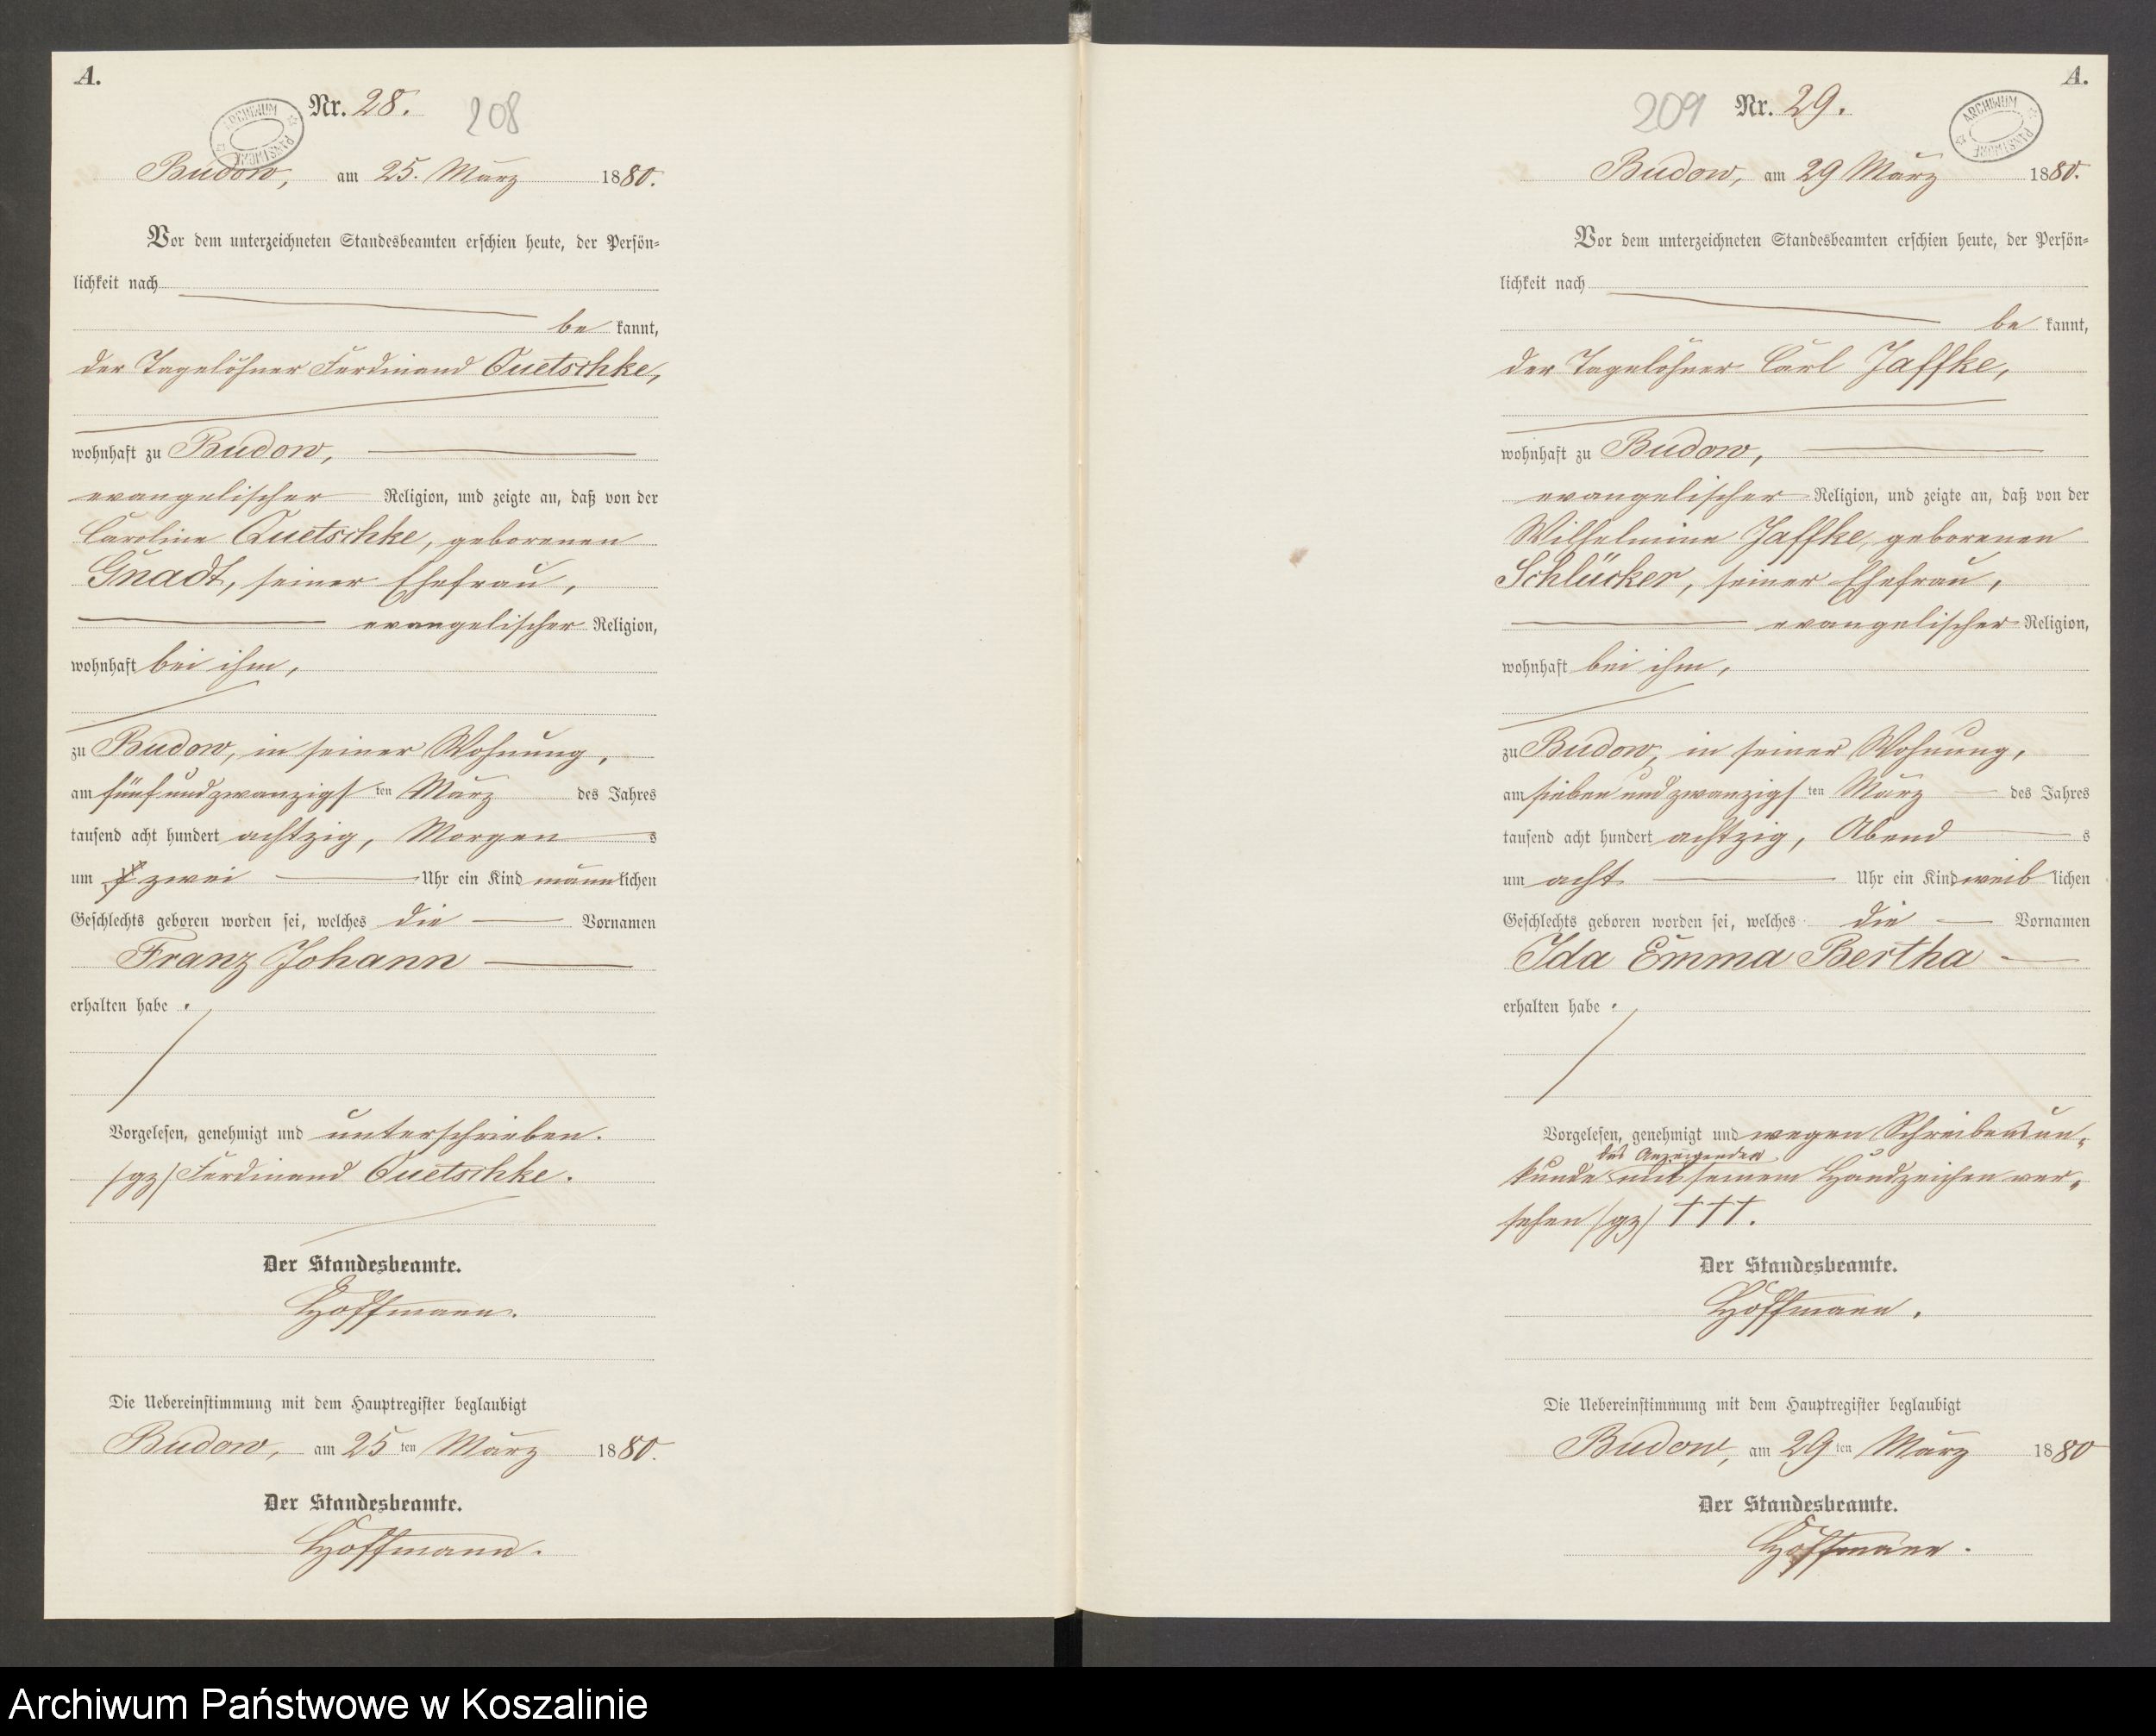 A.
Nr. 28. 208
ARCHIWUM PAŃSTWOWE
Budow, am 25. März 1880.
Vor dem unterzeichneten Standesbeamten erschien heute, der Persön-
lichkeit nach
be kannt,
der Tagelöhner Ferdinand Quetschke,
wohnhaft zu Budow,
evangelischer Religion, und zeigte an, daß von der
Caroline Quetschke, geborenen
Gnadt, seiner Ehefrau,
evangelischer Religion,
wohnhaft bei ihm,
zu Budow, in seiner Wohnung,
am fünfundzwanzigsten März des Jahres
tausend acht hundert achtzig, Morgens
um zwei Uhr ein Kind männlichen
Geschlechts geboren worden sei, welches die Vornamen
Franz Johann
erhalten habe.
Vorgelesen, genehmigt und unterschrieben.
/gz/ Ferdinand Quetschke.
Der Standesbeamte.
Hoffmann.
Die Uebereinstimmung mit dem Hauptregister beglaubigt
Budow, am 25ten März 1880.
Der Standesbeamte.
Hoffmann.
A.
209 Nr. 29.
ARCHIWUM PAŃSTWOWE
Budow, am 29 März 1880.
Vor dem unterzeichneten Standesbeamten erschien heute, der Persön-
lichkeit nach
be kannt,
der Tagelöhner Carl Jaffke,
wohnhaft zu Budow,
evangelischer Religion, und zeigte an, daß von der
Wilhelmine Jaffke, geborenen
Schlücker, seiner Ehefrau,
evangelischer Religion,
wohnhaft bei ihm,
zu Budow, in seiner Wohnung,
am siebenundzwanzigsten März des Jahres
tausend acht hundert achtzig, Abends
um acht Uhr ein Kind weiblichen
Geschlechts geboren worden sei, welches die Vornamen
Ida Emma Bertha
erhalten habe.
Vorgelesen, genehmigt und wegen Schreibensun-
des Anzeigenden
kunde mit seinem Handzeichen ver-
sehen /gz/ †††.
Der Standesbeamte.
Hoffmann.
Die Uebereinstimmung mit dem Hauptregister beglaubigt
Budow, am 29ten März 1880
Der Standesbeamte.
Hoffmann.
Archiwum Państwowe w Koszalinie